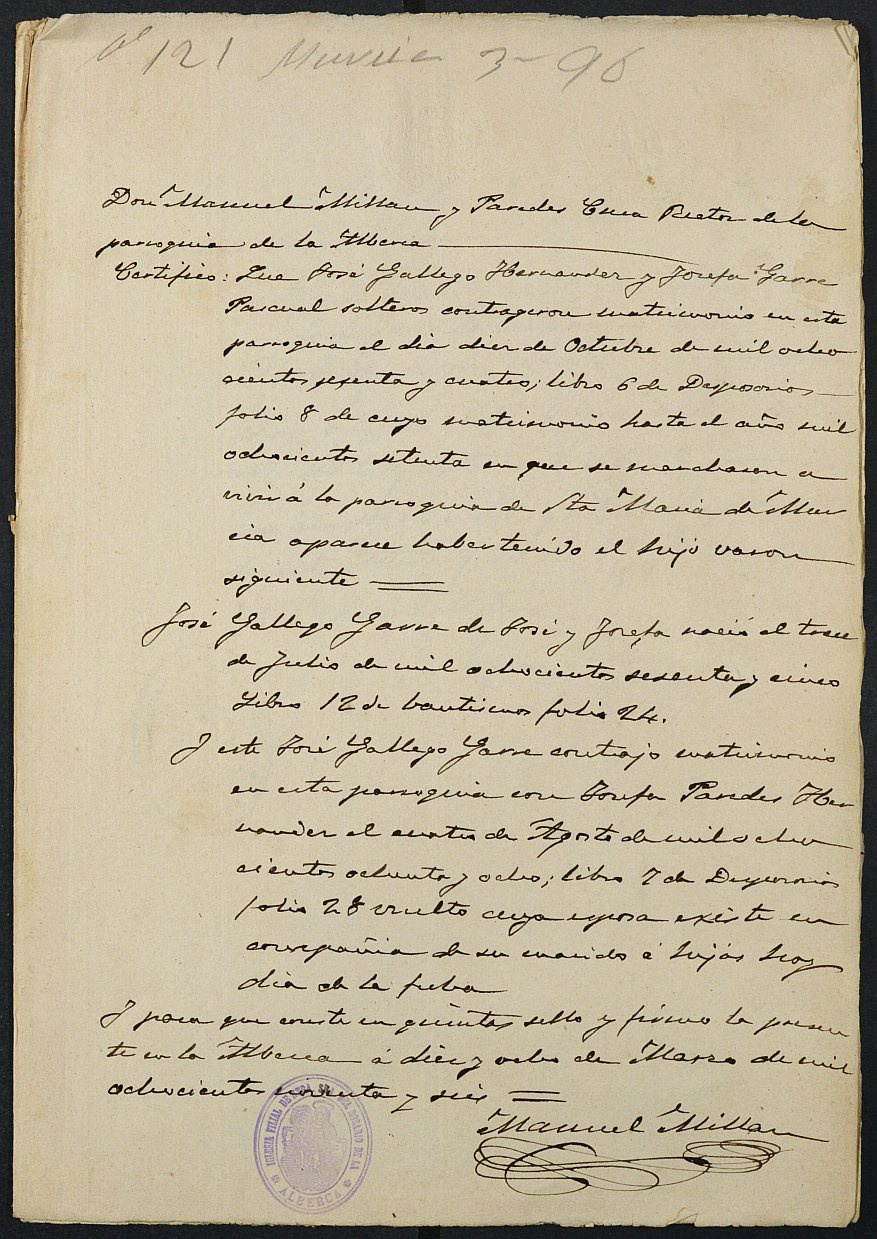 nº 121 Murcia 3-96
Don Manuel Millan y Paredes Cura Rector de la
parroquia de la Alberca
Certifico: Que José Gallego Hernandez y Josefa Garre
Pascual solteros contrageron matrimonio en esta
parroquia el dia diez de Octubre de mil ocho
cientos sesenta y cuatro; libro 6 de Desposorios
folio 8 de cuyo matrimonio hasta el año mil
ochocientos setenta en que se marcharon a
vivir á la parroquia de Sta Maria de Mur
cia aparece haber tenido el hijo varon
siguiente
José Gallego Garre de José y Josefa nació el trece
de Julio de mil ochocientos sesenta y cinco
Libro 12 de bautismos folio 24.
Y este José Gallego Garre contrajo matrimonio
en esta parroquia con Josefa Paredes Her
nandez el cuatro de Agosto de mil ocho
cientos ochenta y ocho; libro 7 de Desposorios
folio 28 vuelto cuya esposa existe en
compañia de su marido é hijos hoy
dia de la fecha
Y para que conste en quintas sello y firmo la presen
te en la Alberca á diez y ocho de Marzo de mil
ochocientos noventa y seis
Manuel Millan
IGLESIA FILIAL DE NTRA. SRA. DEL ROSARIO DE LA
ALBERCA